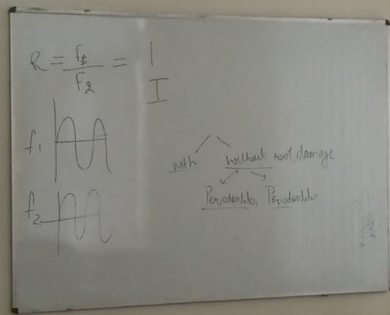 R = f1/F2 = 1
I
f1
f2
with without root damage
Periodontitis Periodontitis